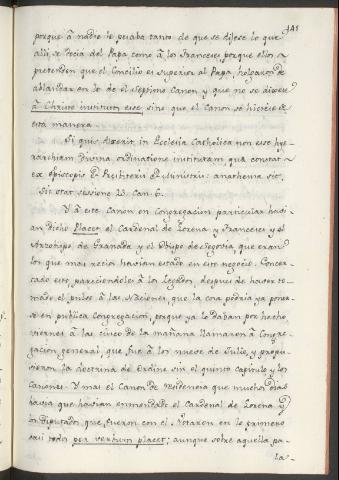 141
porque á nadie le pesaba tanto de que se dijese lo que
alli se decia del Papa como á los Franceses, porque ellos
pretenden que el Concilio es superior al Papa, holgaron de
ablandar en lo de el septimo Canon y que no se dixese
á Christo institutos esse sino que el Canon se hiciese de
esta manera.
Si quis dixerit in Ecclesia Catholica non esse hie-
rarchiam divina ordinatione institutam quæ constat
ex episcopis Presbiteris et Ministris: anathema sit.
Sic stat sessione 23. Can. 6.
Y á este Canon en Congregacion particular havi-
an dicho Placet el Cardenal de Lorena y Franceses y el
Arzobispo de Granada y el Obispo de Segovia, que eran
los que mas recio havian estado en este negocio. Concer-
tado esto, pareciendoles á los Legados, despues de haver to-
mado el pulso á las Naciones, que la cosa podria ya poner-
se en publica Congregacion, porque ya lo daban por hecho,
viernes á las cinco de la mañana llamaron á Congre-
gacion general, que fue á los nueve de Julio, y propu-
sieron la doctrina de Ordine sin el quinto Capitulo y los
Canones. Y mas el Canon de Residencia que muchos dias
havia que havian enmendado el Cardenal de Lorena y
los Diputados que fueron con el. Votaron en lo primero
casi todos per verbum placet; aunque sobre aquella pa-
la-